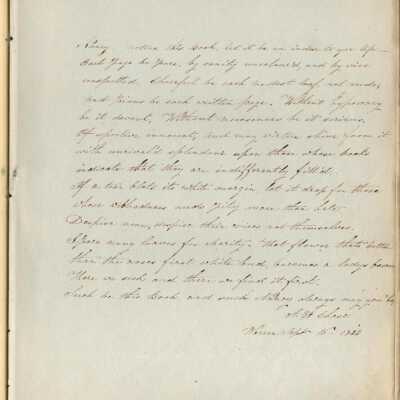 Nancy this Book, let it be an index to your life
Each Page be pure, by vanity unsoiled, and by vice
unspotted. Cheerful be each modest leaf, not rude,
and Pious be each written page. Without hypocrisy
be it devout, Without moroseness be it serious,
If sportive innocent, and may virtue shine from it
with unrivaled splendour upon those whose books
indicate that they are indifferently filled.
If a tear blots its white margin let it drop for those
whose obduracy needs Pity more than hate.
Despise none, despise their vices not themselves.
Spare many leaves for charity. That flower that better
than the roses first white bud, becomes a lady's bosom
Here we seek and there we find it first.
Such be this Book and such Nancy always may you be
Warren Sept 15th